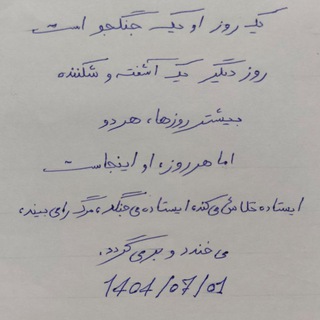 یک روز او یک جنگجو است
روز دیگر یک آشفته و شکننده
بیشتر روزها، هر دو
اما هر روز، او اینجاست
ایستاده تلاش می‌کند، ایستاده می‌جنگد، مرگ را می‌بیند،
می‌خندد و برمی‌گردد.
1404/07/01